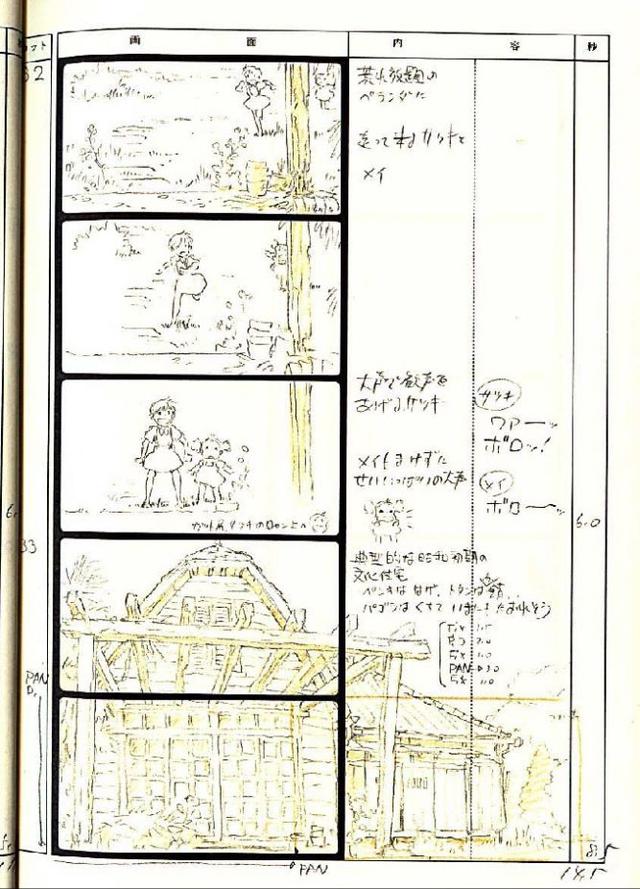 カット
画 面
内 容
秒
32
荒れ放題の
ベランダに
走って来るサツキと
メイ
大声で歓声を
あげるサツキ
サツキ
ワアーッ
ボロッ!
メイもまけずに
せいいっぱいの大声
メイ
ボローッ
6.0
33
典型的な昭和初期の
文化住宅
ペンキははげ、トタンは錆
パーゴラはくちて いまにもたおれそう
PAN 3.0
PAN
D.
8.5
PAN
14.5